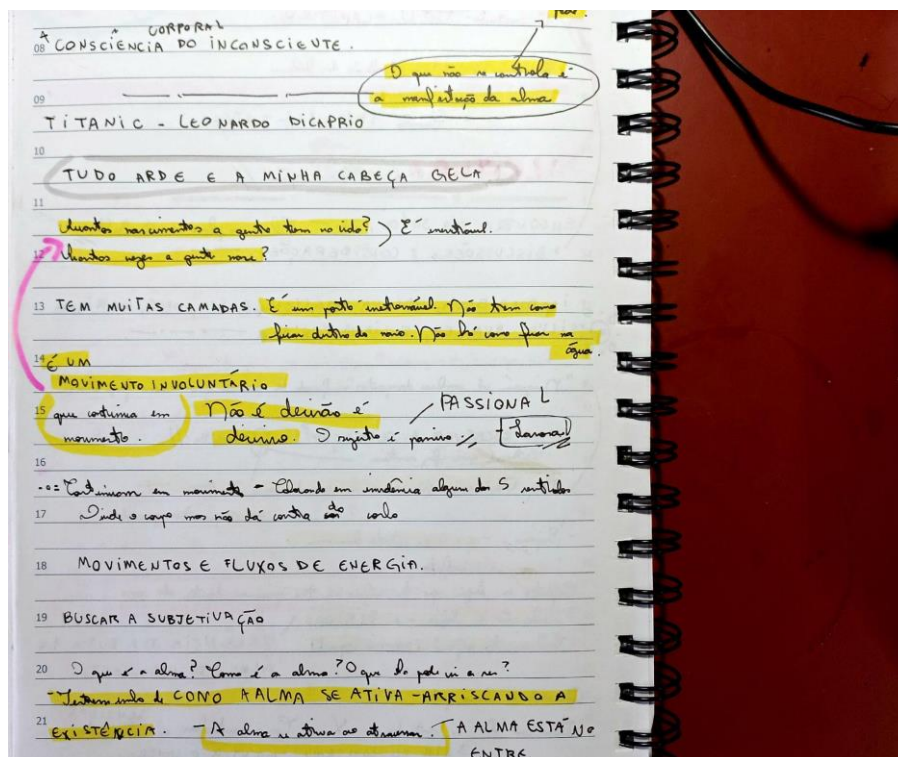 CORPORAL
08 A CONSCIÊNCIA DO INCONSCIENTE.
O que não se controla é
09 a manifestação da alma
TITANIC - LEONARDO DICAPRIO
10
TUDO ARDE E A MINHA CABEÇA GELA
11
Quantos nascimentos a gente tem na vida? ) É inevitável.
12 Quantas vezes a gente morre?
13 TEM MUITAS CAMADAS. É um parto Não tem como
ficar dentro do Não há como ficar na
água.
14 É UM
MOVIMENTO INVOLUNTÁRIO
15 que continua em Não é decisão é PASSIONAL
movimento. O sujeito é passivo
16
Continuam em movimento - Colocando em evidência algum dos 5 sentidos
17 Onde o corpo mas não dá conta do
18 MOVIMENTOS E FLUXOS DE ENERGIA.
19 BUSCAR A SUBJETIVAÇÃO
20 O que é a alma? Como é a alma? O que ela pode vir a ser?
- de COMO A ALMA SE ATIVA - ARRISCANDO A
21 EXISTÊNCIA. - A alma se ativa ao atravessar. A ALMA ESTÁ NO
ENTRE